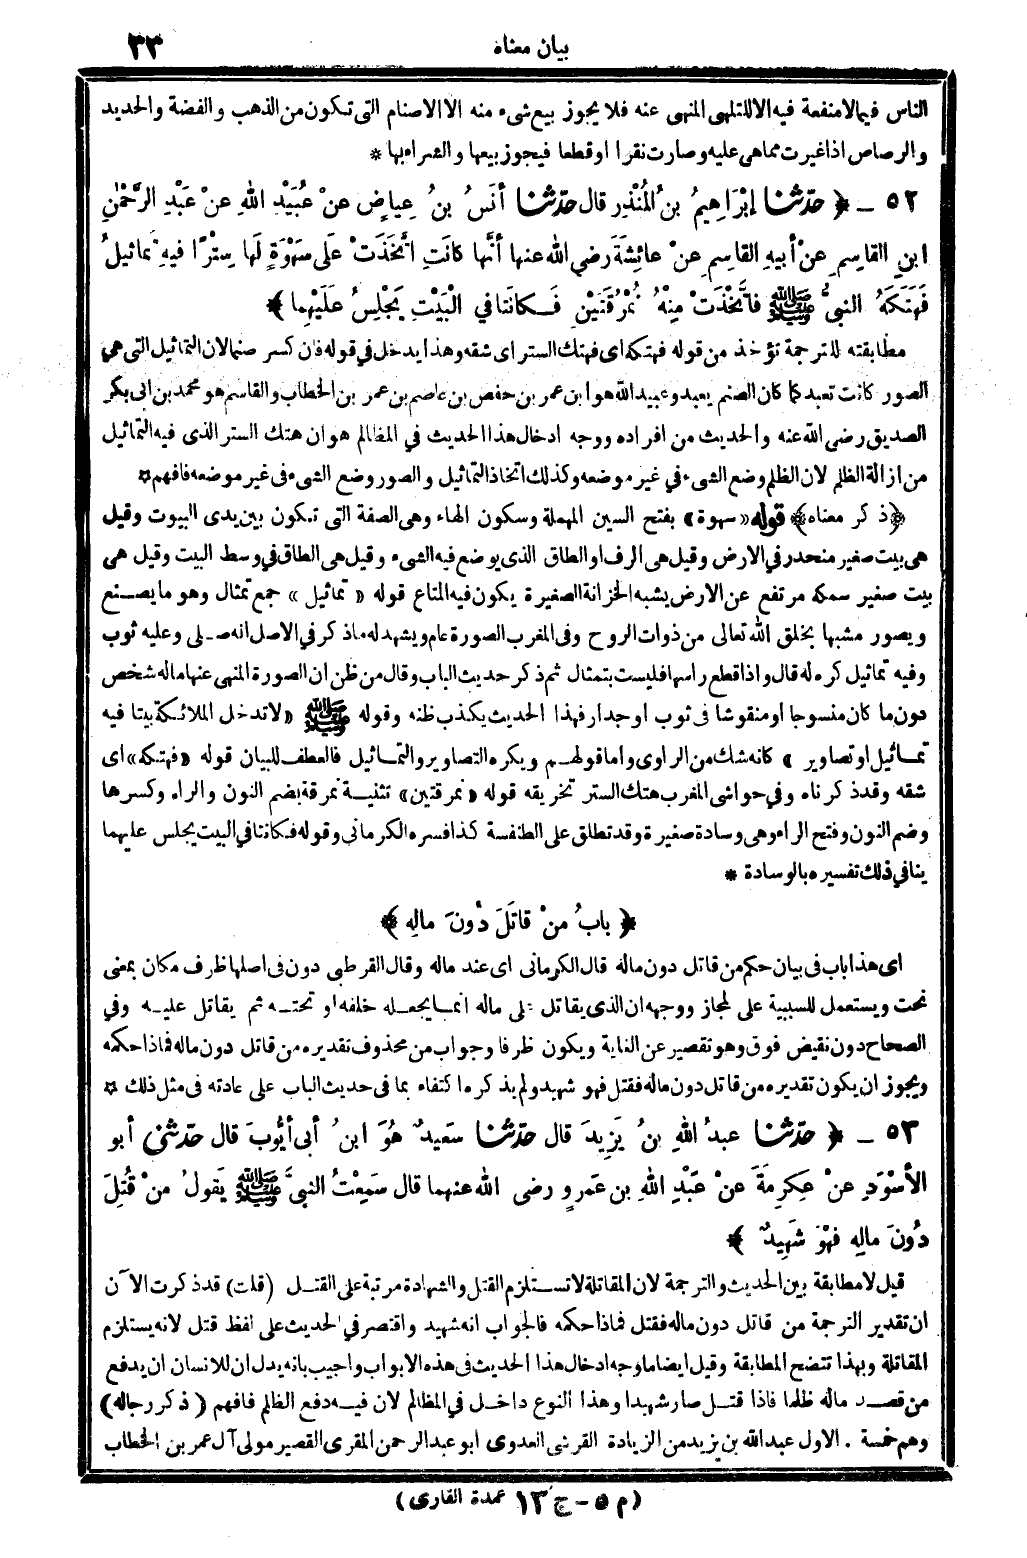 بيان معناه ٣٣
الناس فيما لا منفعة فيه الا للتلهي المنهى عنه فلا يجوز بيع شىء منه الا الاصنام التى تكون من الذهب والفضة والحديد
والرصاص اذا غيرت مما هى عليه وصارت نقرا او قطعا فيجوز بيعها والشراء بها *
٥٢ ـ ﴿ حدّثنا إبْرَاهِيمُ بنُ المُنْذِرِ قال حدّثنا أنَسُ بنُ عِياضٍ عنْ عُبَيْدِ اللهِ عنْ عَبْدِ الرَّحْمٰنِ
ابنِ القاسِمِ عنْ أبيهِ القاسِمِ عنْ عائِشَةَ رضي الله عنها أنَّها كانَتِ اتَّخَذَتْ عَلَى سَهْوَةٍ لَها سِتْرًا فيهِ تَماثِيلُ
فَهَتَكَهُ النبيُّ ﷺ فاتَّخَذَتْ مِنْهُ نُمْرُقَتَيْنِ فَكانَتا في الْبَيْتِ يَجْلِسُ عَلَيْهِما ﴾
مطابقته للترجمة تؤخذ من قوله فهتكه اى فهتك الستر اى شقه وهذا يدخل في قوله فان كسر صنما لان التماثيل التى هي
الصور كانت تعبد كما كان الصنم يعبد وعبيد الله هو ابن عمر بن حفص بن عاصم بن عمر بن الخطاب والقاسم هو محمد بن ابى بكر
الصديق رضى الله عنه والحديث من افراده ووجه ادخال هذا الحديث في المظالم هو ان هتك الستر الذى فيه التماثيل
من ازالة الظلم لان الظلم وضع الشىء في غير موضعه وكذلك اتخاذ التماثيل والصور وضع الشىء فى غير موضعه فافهم *
﴿ ذكر معناه ﴾ قوله «سهوة» بفتح السين المهملة وسكون الهاء وهى الصفة التى تكون بين يدى البيوت وقيل
هى بيت صغير منحدر في الارض وقيل هى الرف او الطاق الذى يوضع فيه الشىء وقيل هى الطاق في وسط البيت وقيل هى
بيت صغير سمكه مرتفع عن الارض يشبه الخزانة الصغيرة يكون فيه المتاع قوله « تماثيل » جمع تمثال وهو ما يصنع
ويصور مشبها بخلق الله تعالى من ذوات الروح وفى المغرب الصورة عام ويشهد له ما ذكر في الاصل انه صلى وعليه ثوب
وفيه تماثيل كره له قال واذا قطع راسها فليست بتمثال ثم ذكر حديث الباب وقال من ظن ان الصورة المنهى عنها ماله شخص
دون ما كان منسوجا او منقوشا فى ثوب او جدار فهذا الحديث يكذب ظنه وقوله ﷺ «لا تدخل الملائكة بيتا فيه
تماثيل او تصاوير » كانه شك من الراوى واما قولهم ويكره التصاوير والتماثيل فالعطف للبيان قوله «فهتكه» اى
شقه وقد ذكرناه وفي حواشى المغرب هتك الستر تخريقه قوله «نمرقتين» تثنية نمرقة بضم النون والراء وكسرها
وضم النون وفتح الراء وهى وسادة صغيرة وقد تطلق على الطنفسة كذا فسره الكرمانى وقوله فكانتا في البيت يجلس عليهما
ينافي ذلك تفسيره بالوسادة *
﴿ بابُ منْ قاتَلَ دُونَ مالِهِ ﴾
اى هذا باب فى بيان حكم من قاتل دون ماله قال الكرمانى اى عند ماله وقال القرطبى دون فى اصلها ظرف مكان بمعنى
تحت ويستعمل للسببية على المجاز ووجهه ان الذى يقاتل على ماله انما يجعله خلفه او تحته ثم يقاتل عليه وفي
الصحاح دون نقيض فوق وهو تقصير عن الغاية ويكون ظرفا وجواب من محذوف تقديره من قاتل دون ماله فماذا حكمه
ويجوز ان يكون تقديره من قاتل دون ماله فقتل فهو شهيد ولم يذكره اكتفاء بما فى حديث الباب على عادته فى مثل ذلك *
٥٣ ـ ﴿ حدّثنا عبدُ اللهِ بنُ يَزِيدَ قال حدّثنا سَعِيدٌ هُوَ ابنُ أبى أيُّوبَ قال حدّثني أبو
الأسْوَدِ عنْ عِكرِمَةَ عنْ عَبْدِ اللهِ بنِ عَمرٍو رضى الله عنهما قال سَمِعْتُ النبيَّ ﷺ يَقولُ منْ قُتِلَ
دُونَ مالِهِ فهْوَ شَهِيدٌ ﴾
قيل لا مطابقة بين الحديث والترجمة لان المقاتلة لا تستلزم القتل والشهادة مرتبة على القتل (قلت) قد ذكرت الآن
ان تقدير الترجمة من قاتل دون ماله فقتل فماذا حكمه فالجواب انه شهيد واقتصر في الحديث على لفظ قتل لانه يستلزم
المقاتلة وبهذا تتضح المطابقة وقيل ايضا ما وجه ادخال هذا الحديث فى هذه الابواب واجيب بانه يدل ان للانسان ان يدفع
من قصد ماله ظلما فاذا قتل صار شهيدا وهذا النوع داخل في المظالم لان فيه دفع الظالم فافهم ( ذكر رجاله)
وهم خمسة . الاول عبد الله بن يزيد من الزيادة القرشى العدوى ابو عبد الرحمن المقرى القصير مولى آل عمر بن الخطاب
(م ٥ ـ ج ١٣ عمدة القارى)